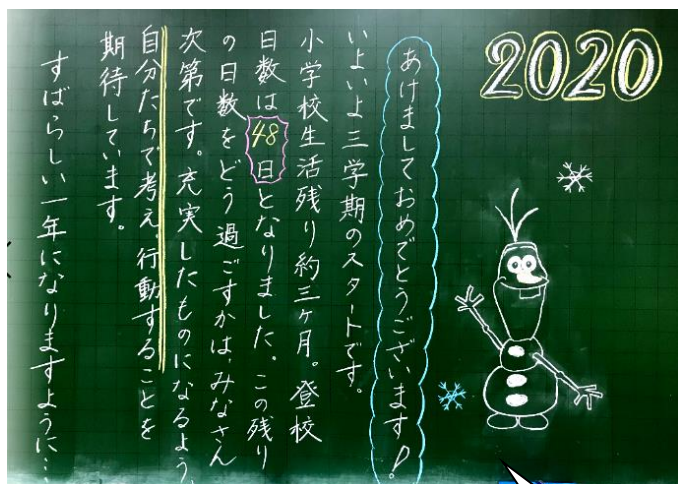 2020
あけましておめでとうございます!
いよいよ三学期のスタートです。
小学校生活残り約三ヶ月。登校
日数は48日となりました。この残り
の日数をどう過ごすかは、みなさん
次第です。充実したものになるよう、
自分たちで考え、行動することを
期待しています。
すばらしい一年になりますように…